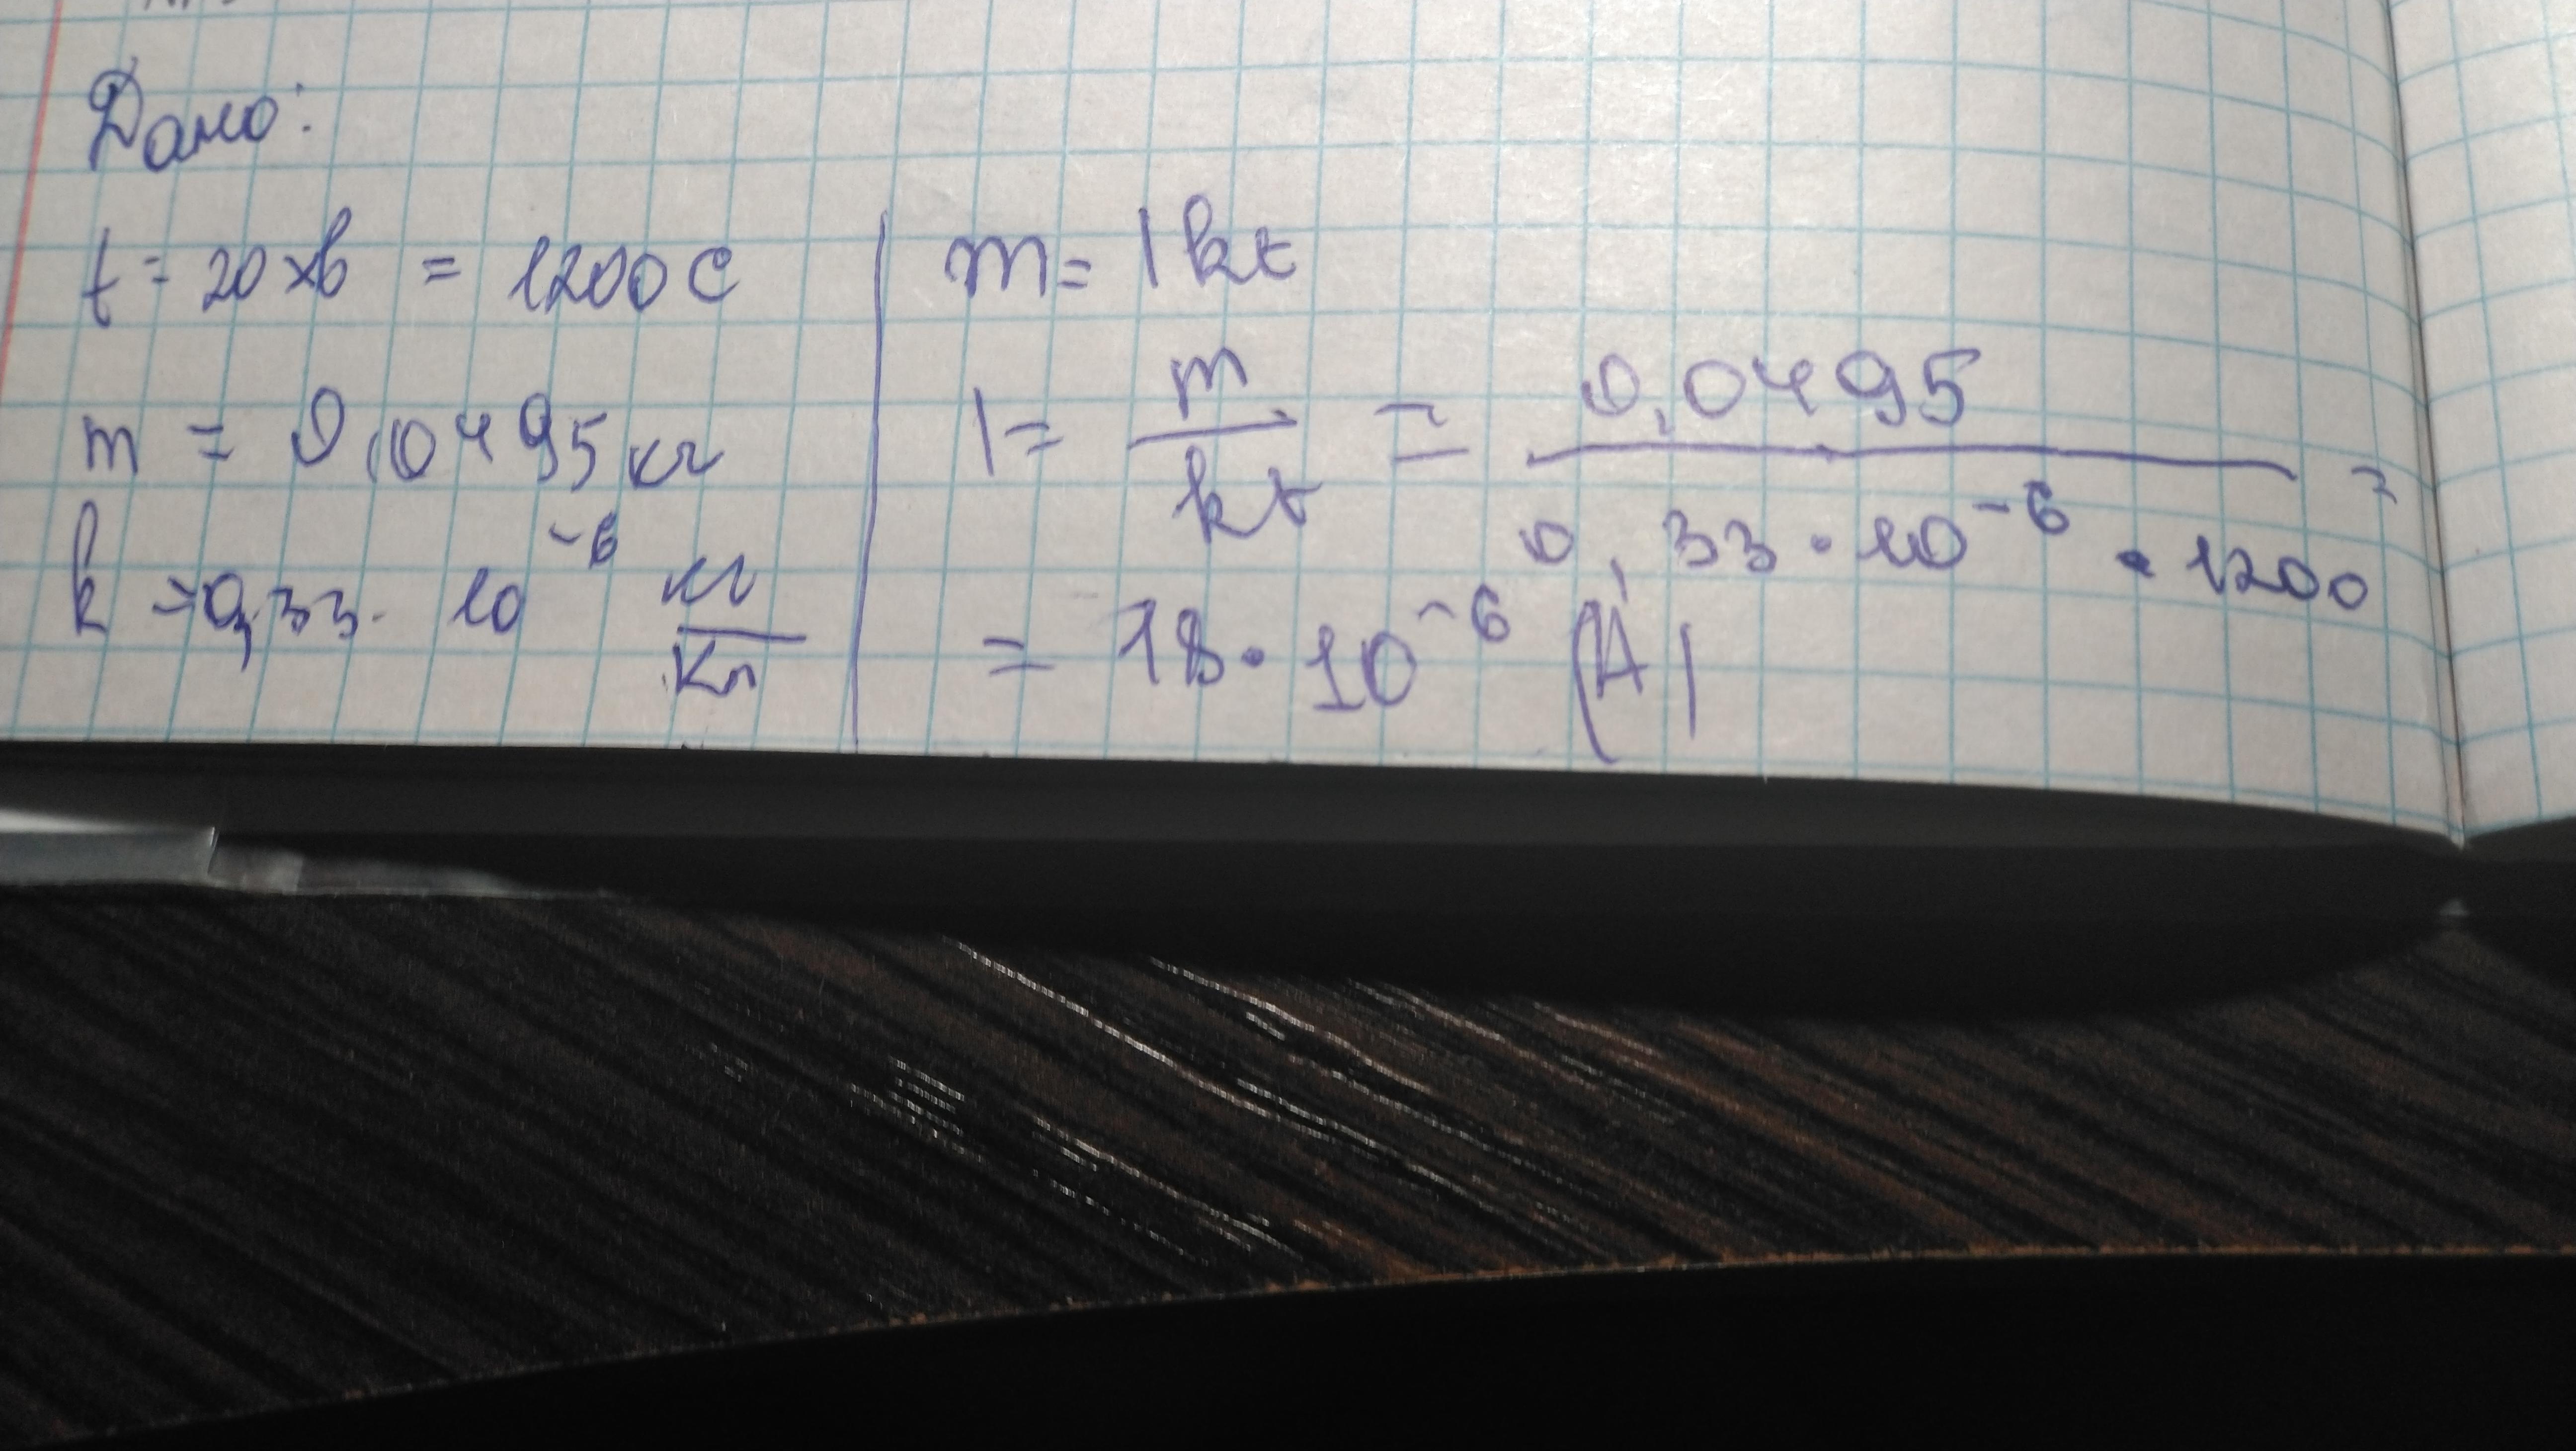 Дано:
t = 20 хв = 1200 с
m = 0,0495 кг
k = 0,33 · 10⁻⁶ кг/Кл
m = I k t
I = m/kt = 0,0495/0,33 · 10⁻⁶ · 1200 =
= 18 · 10⁻⁶ (А)